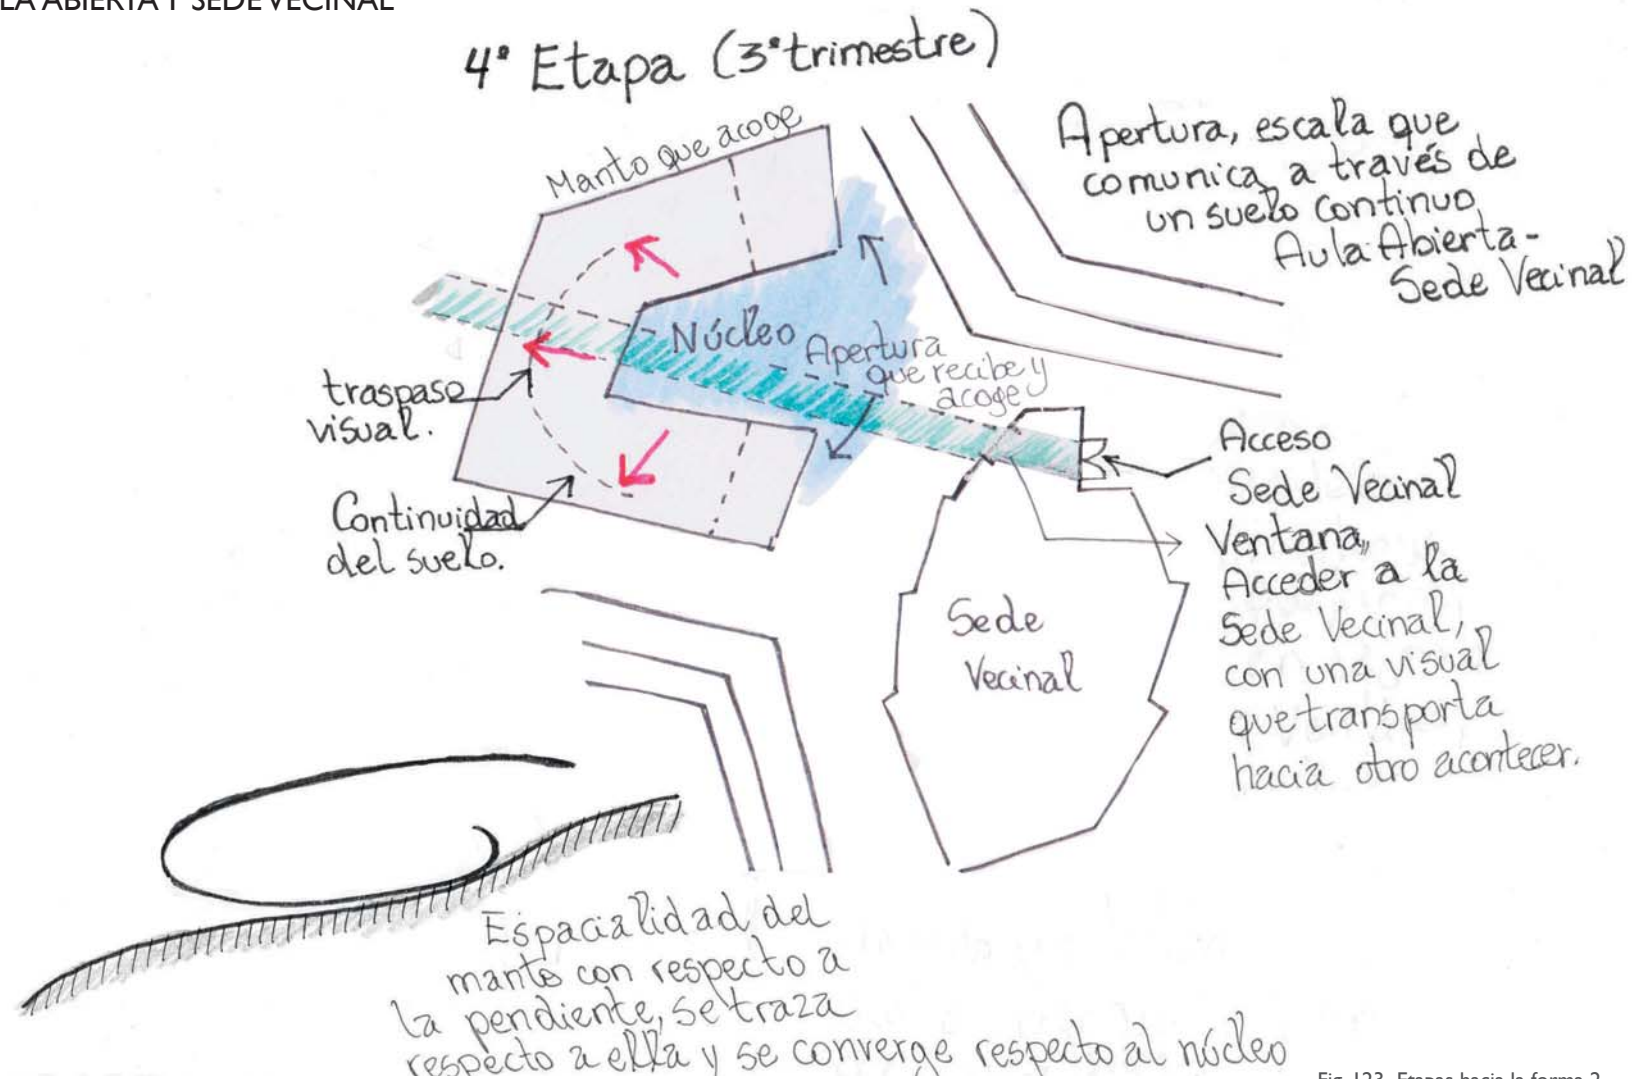 LA ABIERTA Y SEDE VECINAL
4ª Etapa (3ºtrimestre)
Manto que acoge
Apertura, escala que
comunica a través de
un suelo continuo
Aula Abierta-
Sede Vecinal
Núcleo
Apertura
que recibe y
acoge
traspaso
visual.
Continuidad
del suelo.
Acceso
Sede Vecinal
Ventana,,
Acceder a la
Sede Vecinal,
con una visual
que transporta
hacia otro acontecer.
Sede
Vecinal
Espacialidad del
manto con respecto a
la pendiente, se traza
respecto a ella y se converge respecto al núcleo
Fig. 123. Etapas hacia la forma 2